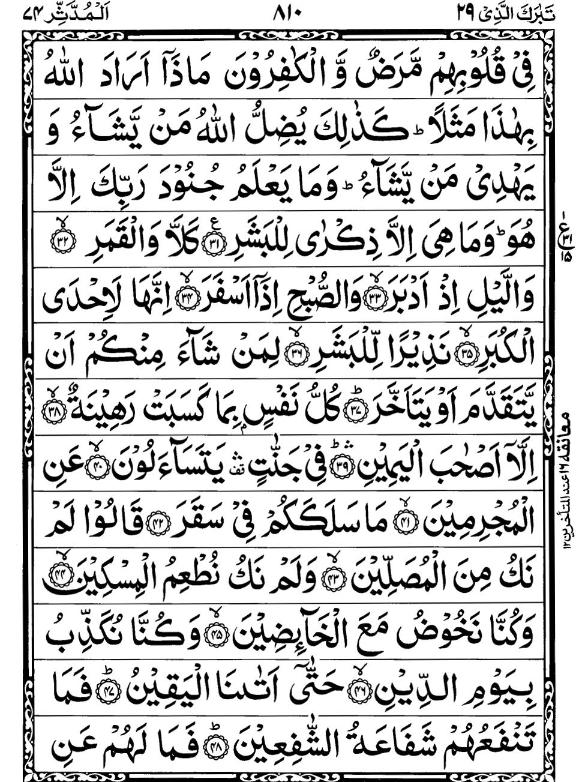 تَبٰرَكَ الَّذِیْ ٢٩
٨١٠
اَلْمُدَّثِّر ٧٤
فِیْ قُلُوْبِهِمْ مَّرَضٌ وَّ الْكٰفِرُوْنَ مَاذَاۤ اَرَادَ اللّٰهُ
بِهٰذَا مَثَلًاؕ كَذٰلِكَ یُضِلُّ اللّٰهُ مَنْ یَّشَآءُ وَ
یَهْدِیْ مَنْ یَّشَآءُؕ وَمَا یَعْلَمُ جُنُوْدَ رَبِّكَ اِلَّا
هُوَؕ وَمَا هِیَ اِلَّا ذِكْرٰی لِلْبَشَرِ ﴿٣١﴾ كَلَّا وَالْقَمَرِ ﴿٣٢﴾
وَالَّیْلِ اِذْ اَدْبَرَ ﴿٣٣﴾ وَالصُّبْحِ اِذَاۤ اَسْفَرَ ﴿٣٤﴾ اِنَّهَا لَاِحْدَی
الْكُبَرِ ﴿٣٥﴾ نَذِیْرًا لِّلْبَشَرِ ﴿٣٦﴾ لِمَنْ شَآءَ مِنْكُمْ اَنْ
یَّتَقَدَّمَ اَوْ یَتَاَخَّرَ ﴿٣٧﴾ كُلُّ نَفْسٍۭ بِمَا كَسَبَتْ رَهِیْنَةٌ ﴿٣٨﴾
اِلَّاۤ اَصْحٰبَ الْیَمِیْنِ ﴿٣٩﴾ فِیْ جَنّٰتٍ یَتَسَآءَلُوْنَ ﴿٤٠﴾ عَنِ
الْمُجْرِمِیْنَ ﴿٤١﴾ مَا سَلَكَكُمْ فِیْ سَقَرَ ﴿٤٢﴾ قَالُوْا لَمْ
نَكُ مِنَ الْمُصَلِّیْنَ ﴿٤٣﴾ وَلَمْ نَكُ نُطْعِمُ الْمِسْكِیْنَ ﴿٤٤﴾
وَكُنَّا نَخُوْضُ مَعَ الْخَآئِضِیْنَ ﴿٤٥﴾ وَكُنَّا نُكَذِّبُ
بِیَوْمِ الدِّیْنِ ﴿٤٦﴾ حَتّٰۤی اَتٰىنَا الْیَقِیْنُ ﴿٤٧﴾ فَمَا
تَنْفَعُهُمْ شَفَاعَةُ الشّٰفِعِیْنَ ﴿٤٨﴾ فَمَا لَهُمْ عَنِ
ع ٣١ ١٥
معانقة ١٦ عند المتأخرين ١٢